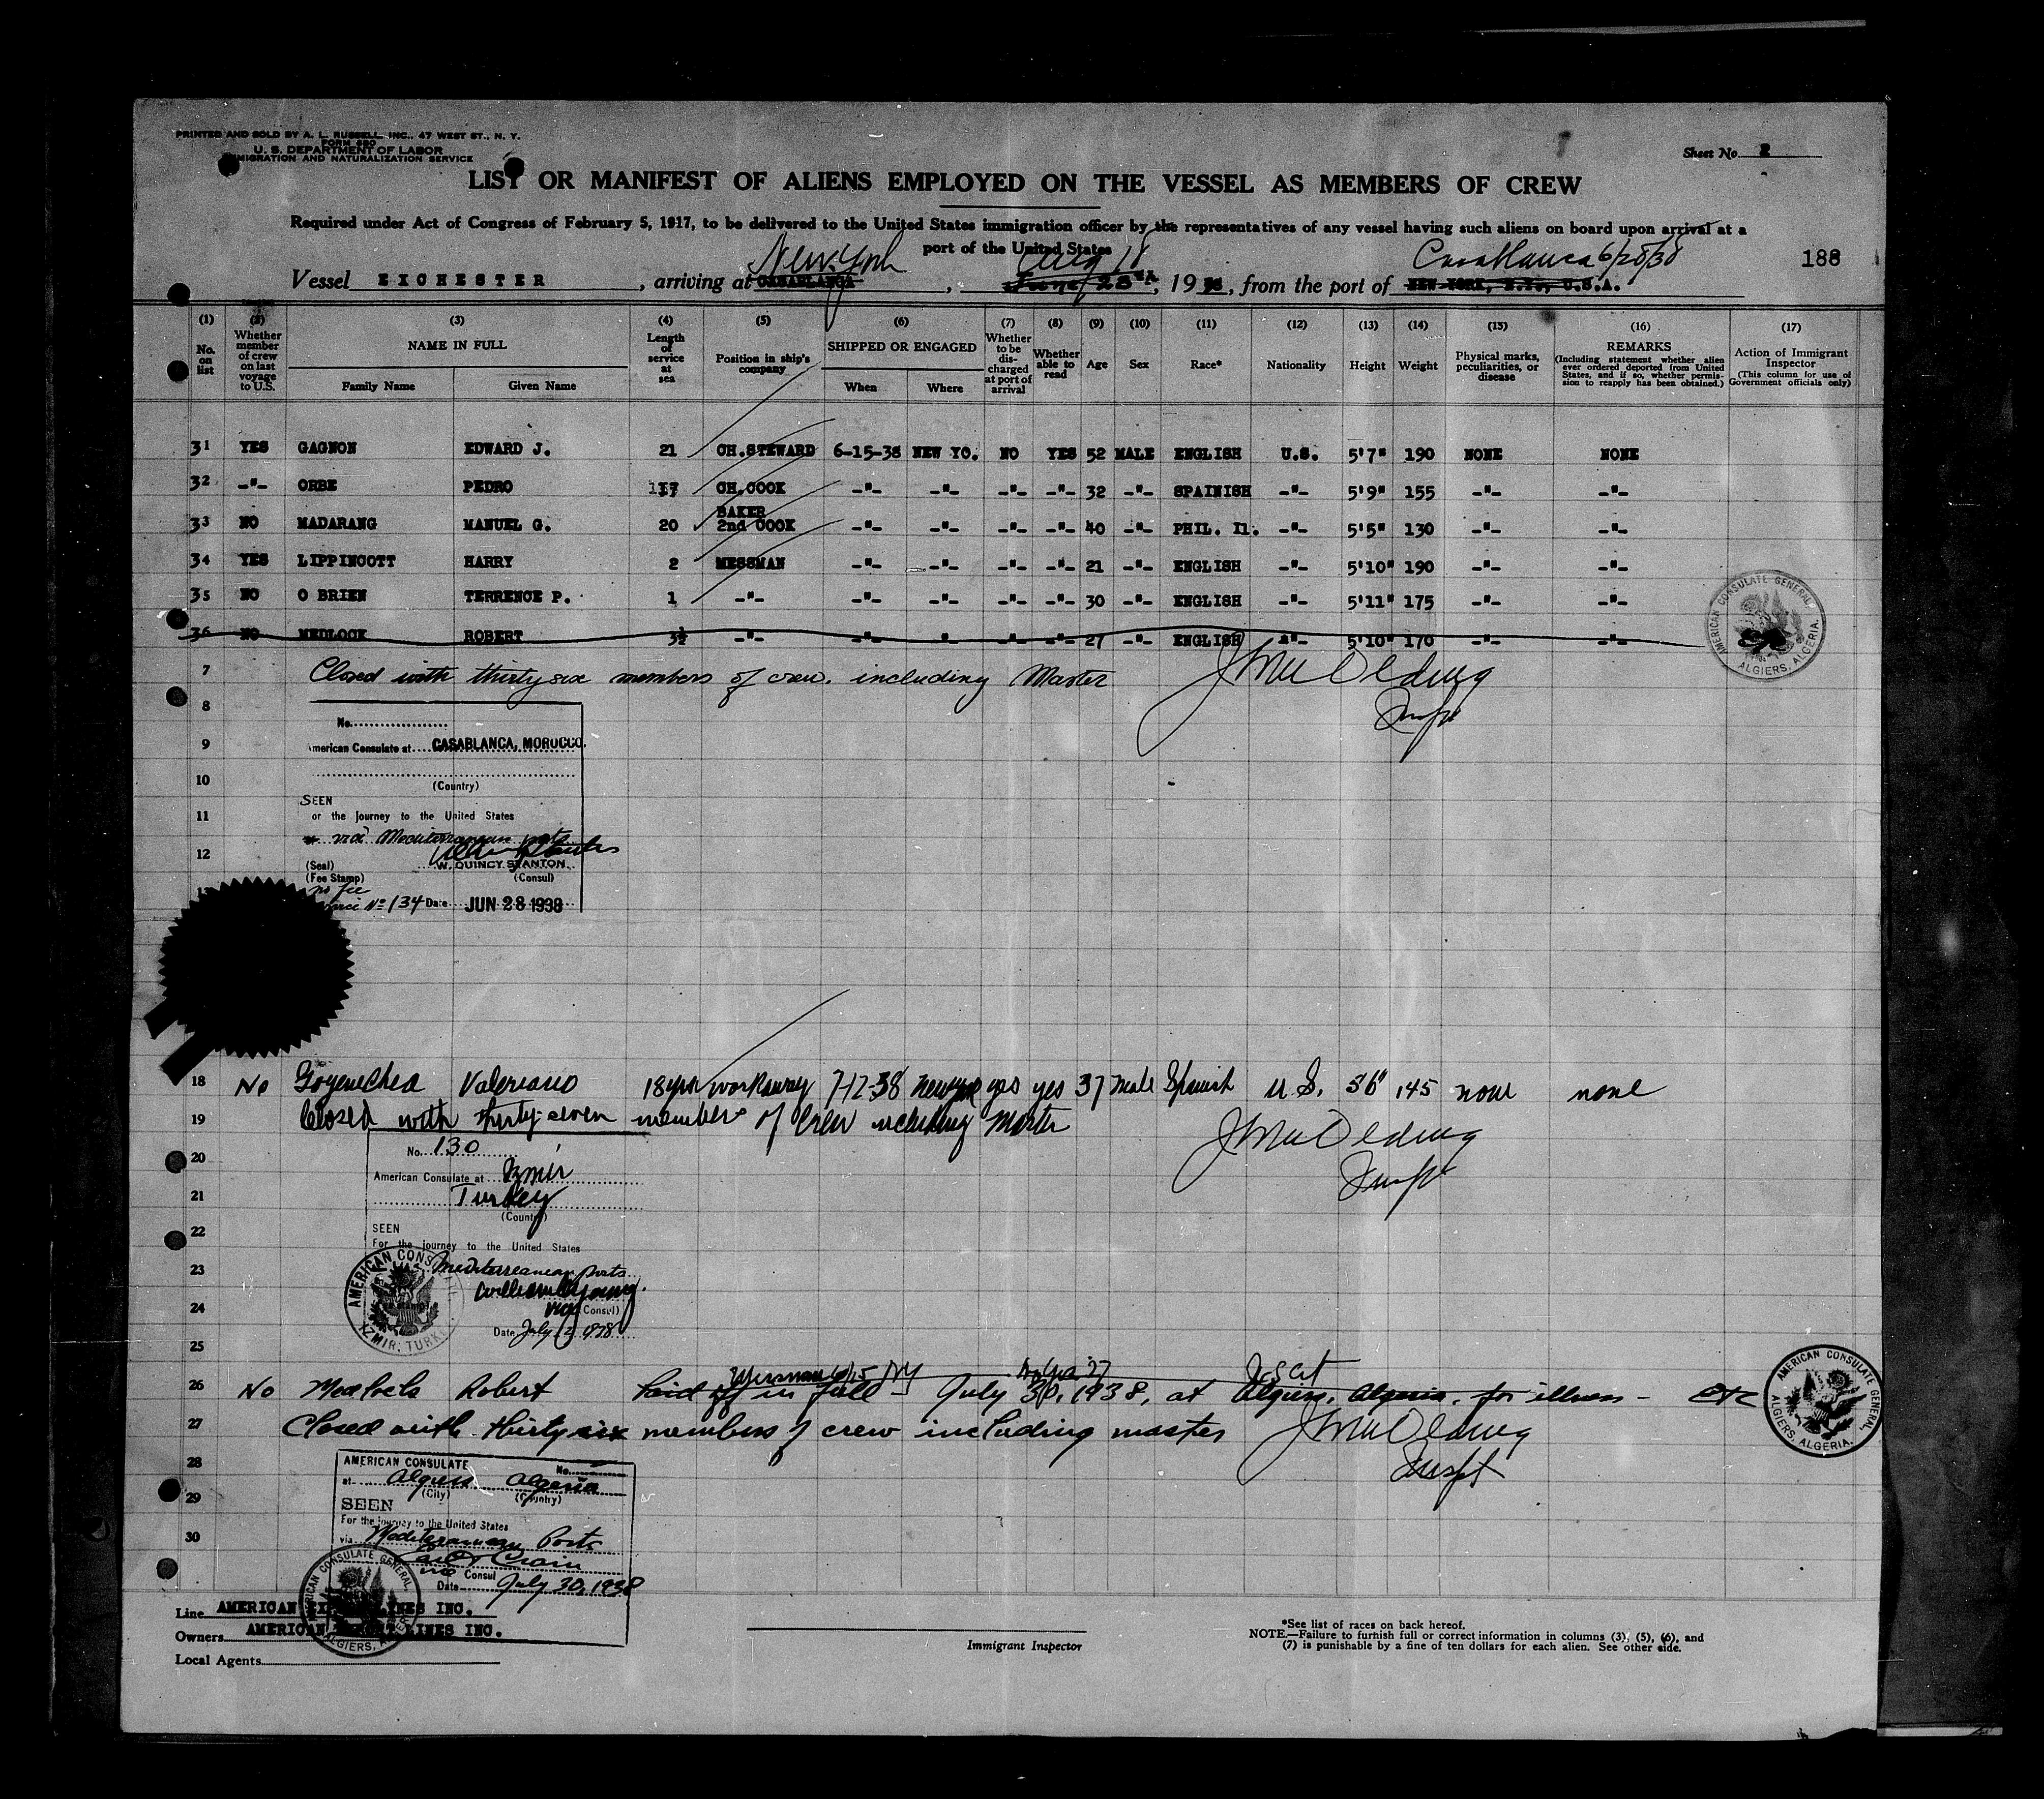 PRINTED AND SOLD BY A. L. RUSSELL, INC., 47 WEST ST., N. Y.
FORM 680
U. S. DEPARTMENT OF LABOR
IMMIGRATION AND NATURALIZATION SERVICE
Sheet No. 2
LIST OR MANIFEST OF ALIENS EMPLOYED ON THE VESSEL AS MEMBERS OF CREW
Required under Act of Congress of February 5, 1917, to be delivered to the United States immigration officer by the representatives of any vessel having such aliens on board upon arrival at a
port of the United States
188
New York Aug 18 Casablanca 6/28/38
Vessel EXCHESTER, arriving at CASABLANCA, June/28th, 1938, from the port of NEW YORK, N.Y., U.S.A.
(1) (2) (3) (4) (5) (6) (7) (8) (9) (10) (11) (12) (13) (14) (15) (16) (17)
No. on list
Whether member of crew on last voyage to U.S.
NAME IN FULL
Family Name Given Name
Length of service at sea
Position in ship's company
SHIPPED OR ENGAGED
When Where
Whether to be discharged at port of arrival
Whether able to read
Age
Sex
Race*
Nationality
Height
Weight
Physical marks, peculiarities, or disease
REMARKS
(Including statement whether alien ever ordered deported from United States, and if so, whether permission to reapply has been obtained.)
Action of Immigrant Inspector
(This column for use of Government officials only)
31 YES GAGNON EDWARD J. 21 CH.STEWARD 6-15-38 NEW YO. NO YES 52 MALE ENGLISH U.S. 5'7" 190 NONE NONE
32 -"- ORBE PEDRO 17 CH.COOK -"- -"- -"- -"- 32 -"- SPAINISH -"- 5'9" 155 -"- -"-
33 NO MADARANG MANUEL G. 20 BAKER 2nd COOK -"- -"- -"- -"- 40 -"- PHIL. Il. -"- 5'5" 130 -"- -"-
34 YES LIPPINCOTT HARRY 2 MESSMAN -"- -"- -"- -"- 21 -"- ENGLISH -"- 5'10" 190 -"- -"-
35 NO O BRIEN TERRENCE P. 1 -"- -"- -"- -"- -"- 30 -"- ENGLISH -"- 5'11" 175 -"- -"-
36 NO MEDLOCK ROBERT 3½ -"- -"- -"- -"- -"- 27 -"- ENGLISH -"- 5'10" 170 -"- -"-
AMERICAN CONSULATE GENERAL, ALGIERS, ALGERIA.
7 Closed with thirty six members of crew, including Master
8
No.
9
American Consulate at CASABLANCA, MOROCCO.
10
(Country)
SEEN
11
or the journey to the United States
via Mediterranean ports
12
W. QUINCY STANTON
(Seal)
(Fee Stamp) (Consul)
no fee
13
No 134 Date JUN 28 1938
18 No Goyenechea Valeriano 18 yrs workaway 7-12-38 New York yes yes 37 male Spanish U.S. 5'6" 145 none none
19 Closed with thirty-seven members of Crew including Master
Inspt
No. 130
20
American Consulate at Izmir
21
Turkey
(Country)
22
SEEN
For the journey to the United States
23
Mediterranean ports
AMERICAN CONSULATE IZMIR, TURKEY
24
vice (Consul)
Date July 12 1938
25
Messman 6/15 NY
26 No Medlock Robert Paid off in full July 30, 1938, at Algiers, Algeria, for illness
27 Closed with thirty six members of crew including master
Inspt
AMERICAN CONSULATE GENERAL, ALGIERS, ALGERIA.
28
AMERICAN CONSULATE No.
at Algiers Algeria
(City) (Country)
29
SEEN
For the journey to the United States
30
via Mediterranean Ports
Consul
Date July 30, 1938
AMERICAN CONSULATE GENERAL, ALGIERS, ALGERIA.
Line AMERICAN EXPORT LINES INC.
Owners AMERICAN EXPORT LINES INC.
Local Agents
Immigrant Inspector
*See list of races on back hereof.
NOTE.—Failure to furnish full or correct information in columns (3), (5), (6), and
(7) is punishable by a fine of ten dollars for each alien. See other side.